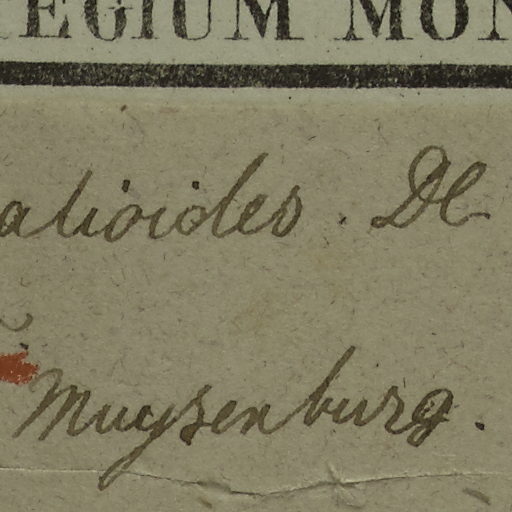 EGIUM MON
alioides. Dl
Muysenburg.